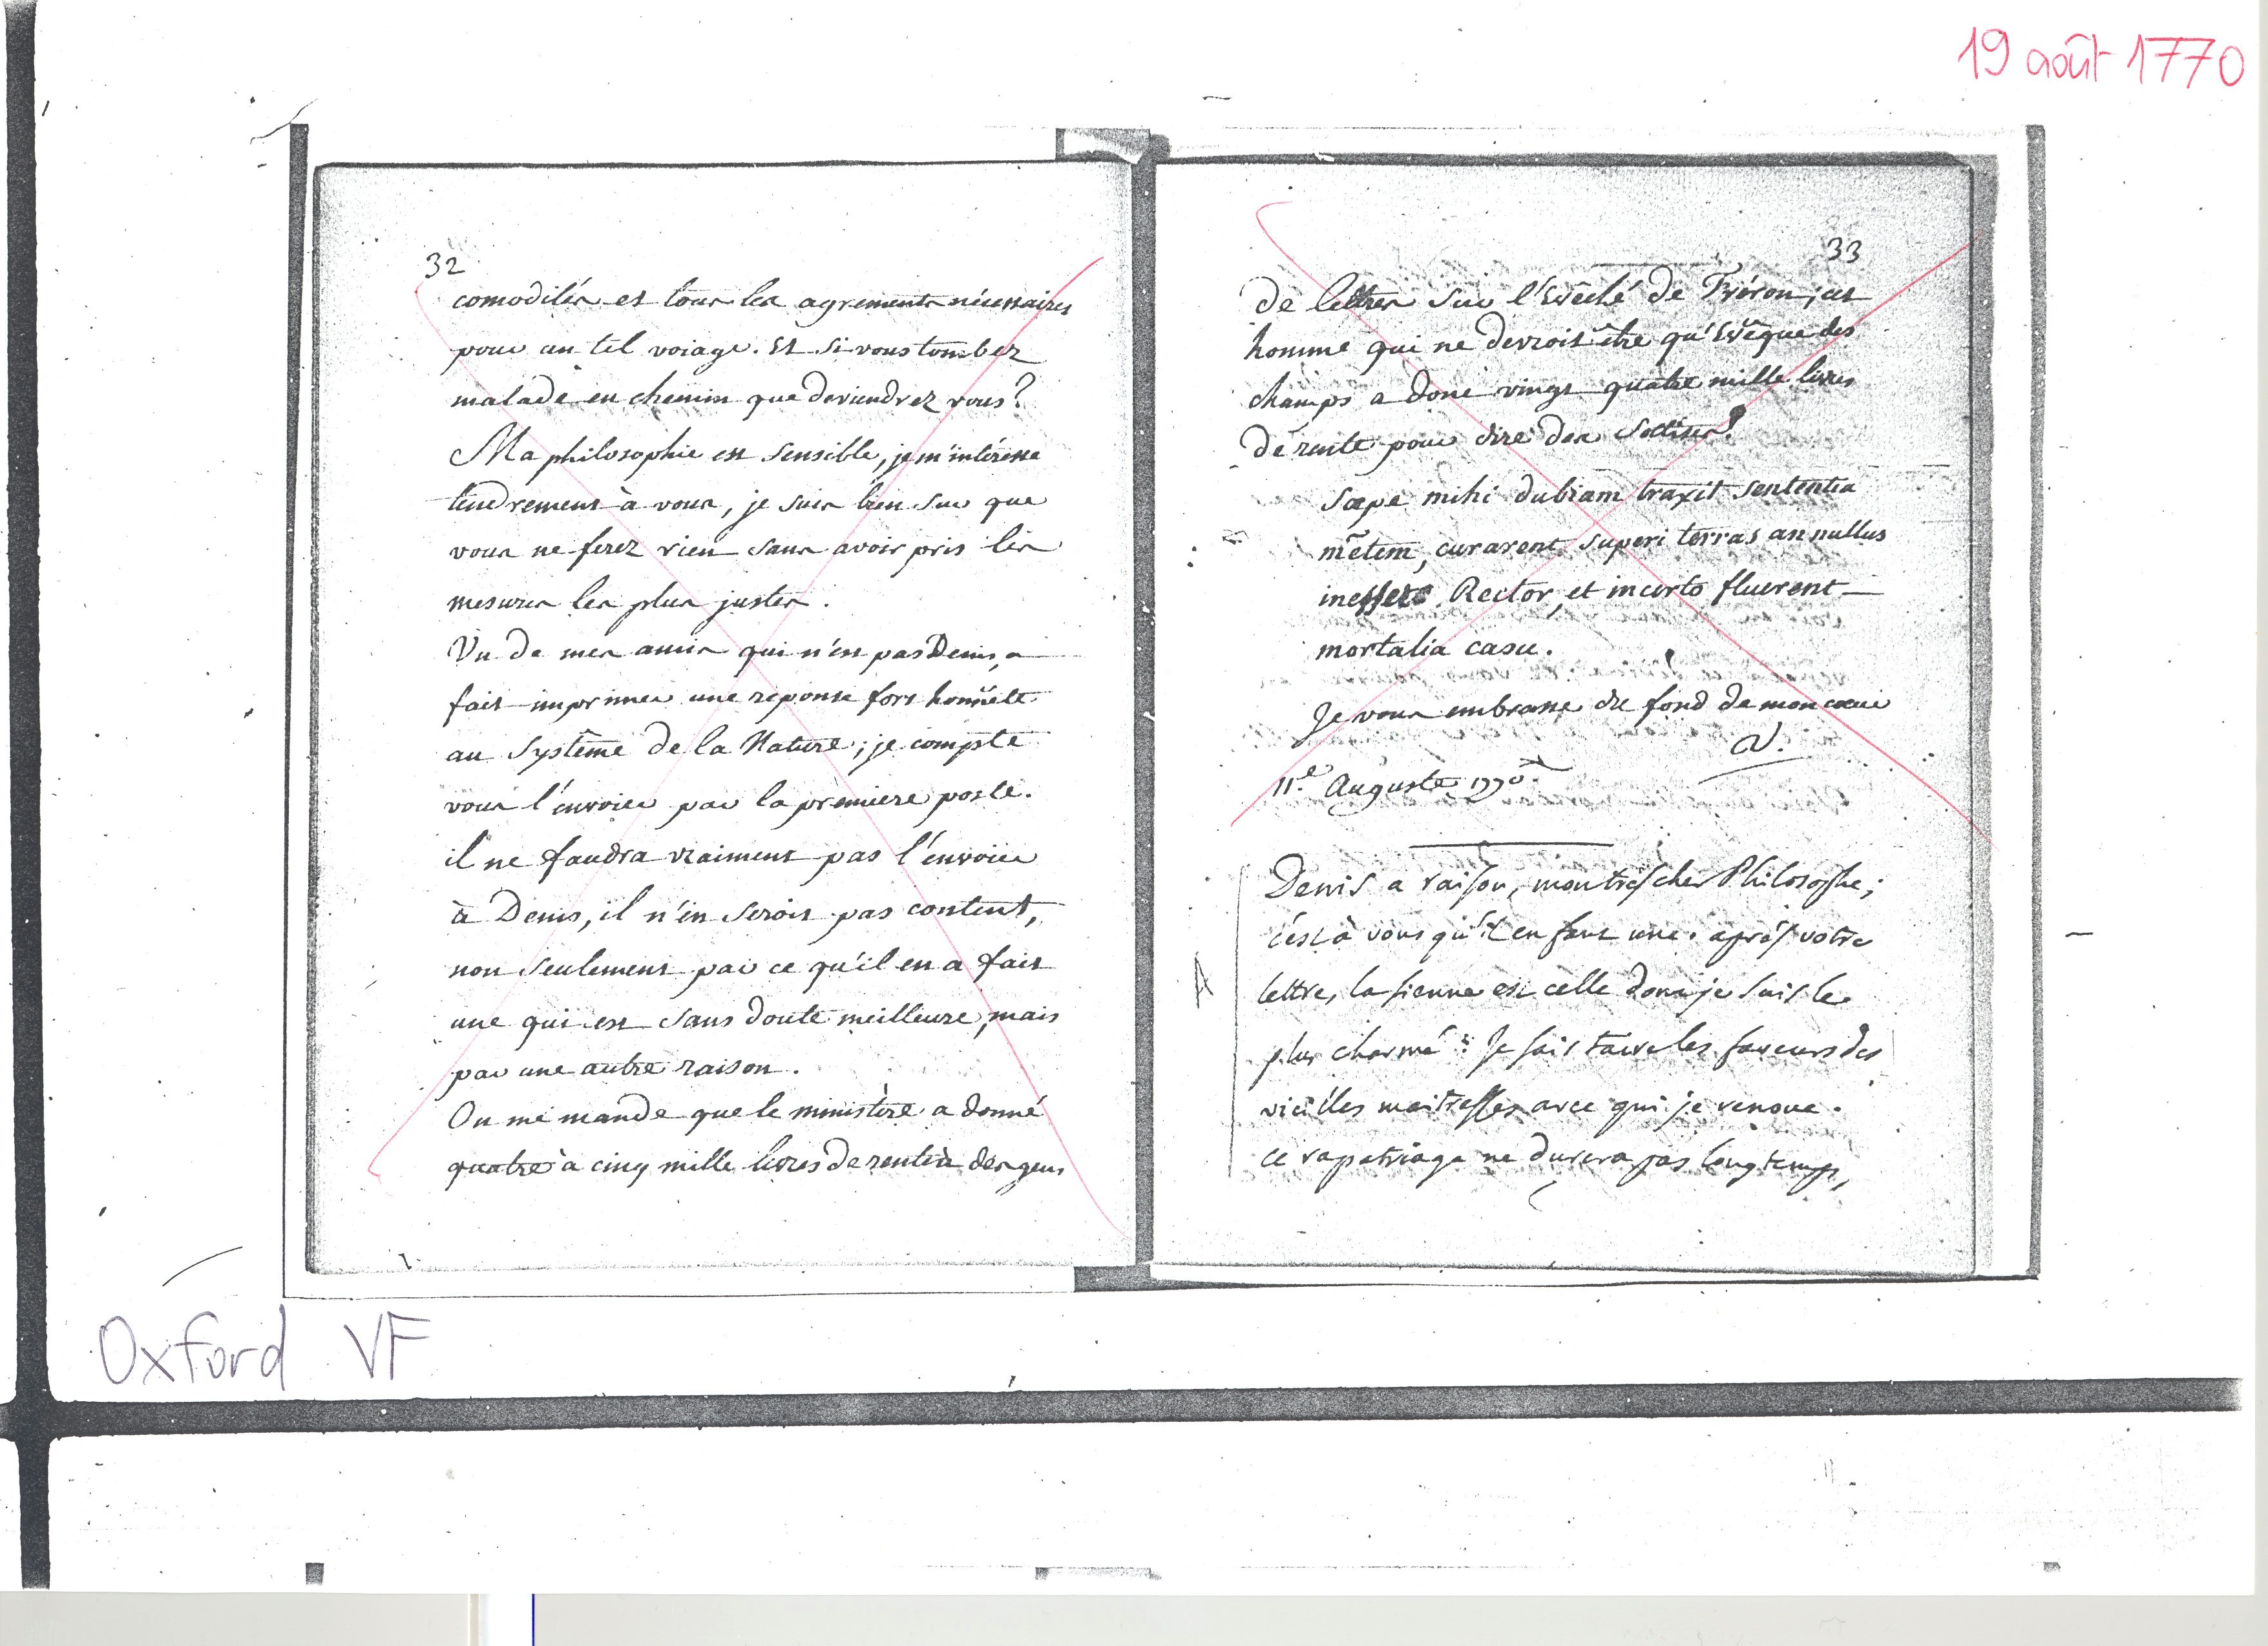 19 août 1770
32
comodités et tous les agrements nécessaires
pour un tel voiage. Et si vous tombez
malade en chemin que deviendrez vous?
Ma philosophie est sensible, je m'intéresse
tendrement à vous, je suis bien sur que
vous ne ferez rien sans avoir pris les
mesures les plus justes.
Un de mes amis qui n'est pas Denis, a
fait imprimer une reponse fort honnête
au Systême de la Nature; je compte
vous l'envoier par la premiere poste.
il ne faudra vraiment pas l'envoier
à Denis, il n'en seroit pas content,
non seulement par ce qu'il en a fait
une qui est sans doute meilleure, mais
par une autre raison.
On me mande que le ministère a donné
quatre à cinq mille livres de rente à des gens
33
de lettres sur l'Evêché de Fréron; cet
homme qui ne devroit être qu'Evêque des
champs a donc vingt quatre mille livres
de rente pour dire des sottises?
Sæpe mihi dubiam traxit sententia
mẽtem, curarent superi terras an nullus
inesset Rector, et incerto fluerent
mortalia casu.
Je vous embrasse du fond de mon cœur
V.
11.e Auguste 1770.
Denis a raison, mon très cher Philosophe;
c'est à vous qu'il en faut une. après votre
lettre, la sienne est celle dont je suis le
plus charmé. Je fais taire les faveurs des
vieilles maitresses avec qui je renoue.
ce rapatriage ne durera pas longtemps,
A
Oxford VF